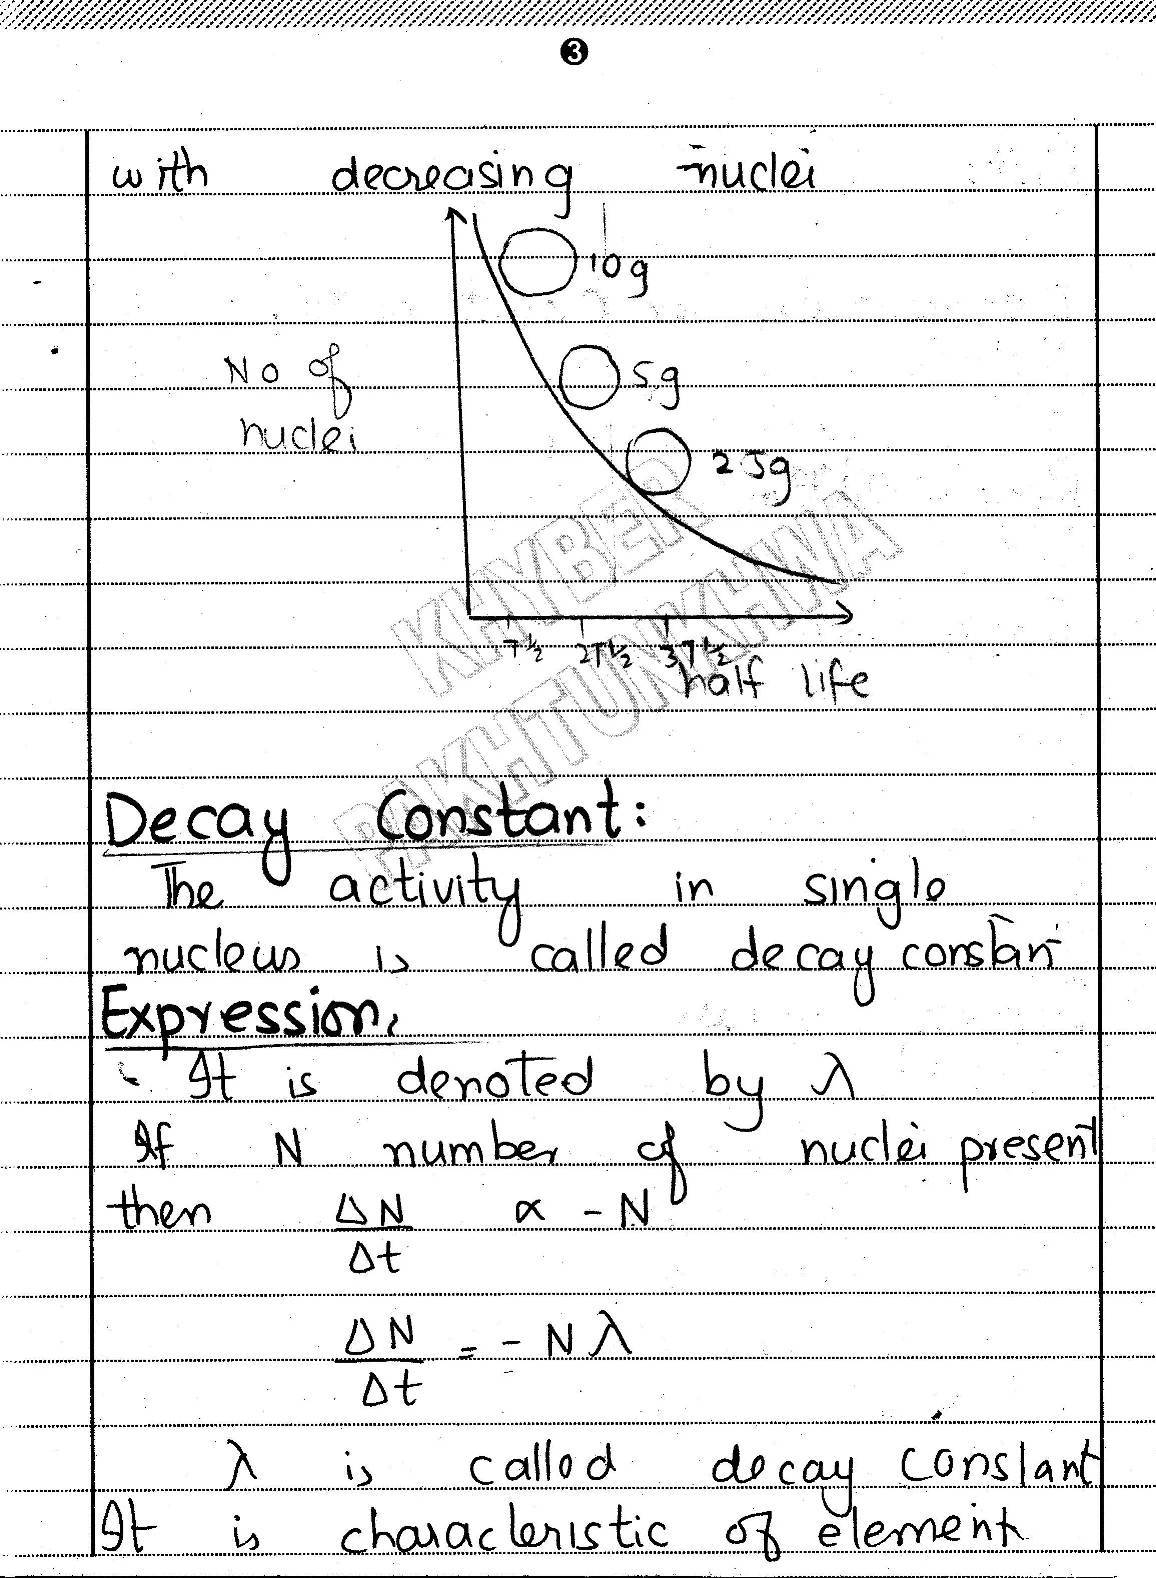 3
with decreasing nuclei
10g
5g
No of
nuclei
2 5g
T½ 2T½ 3T½
half life
KHYBER
PAKHTUNKHWA
Decay Constant:
The activity in single
nucleus is called decay constan
Expression,
It is denoted by λ
If N number of nuclei present
then ΔN/Δt ∝ - N
ΔN/Δt = - N λ
λ is called decay constant
It is characteristic of element